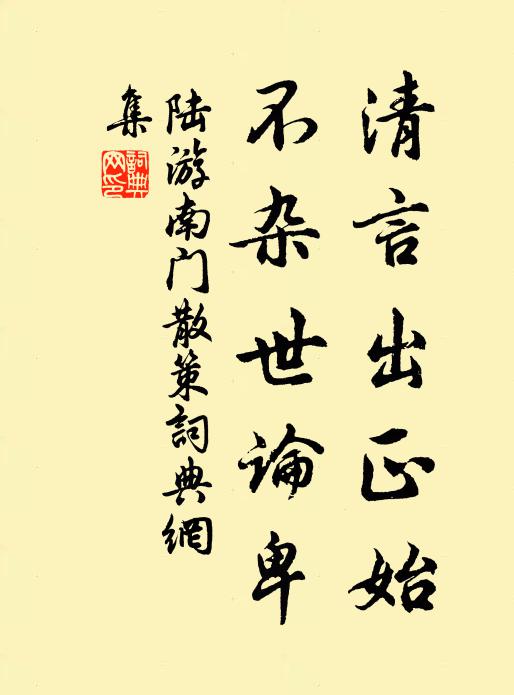 清言出正始
不杂世论卑
陆游南门散策詞典網
集
詞典
网印